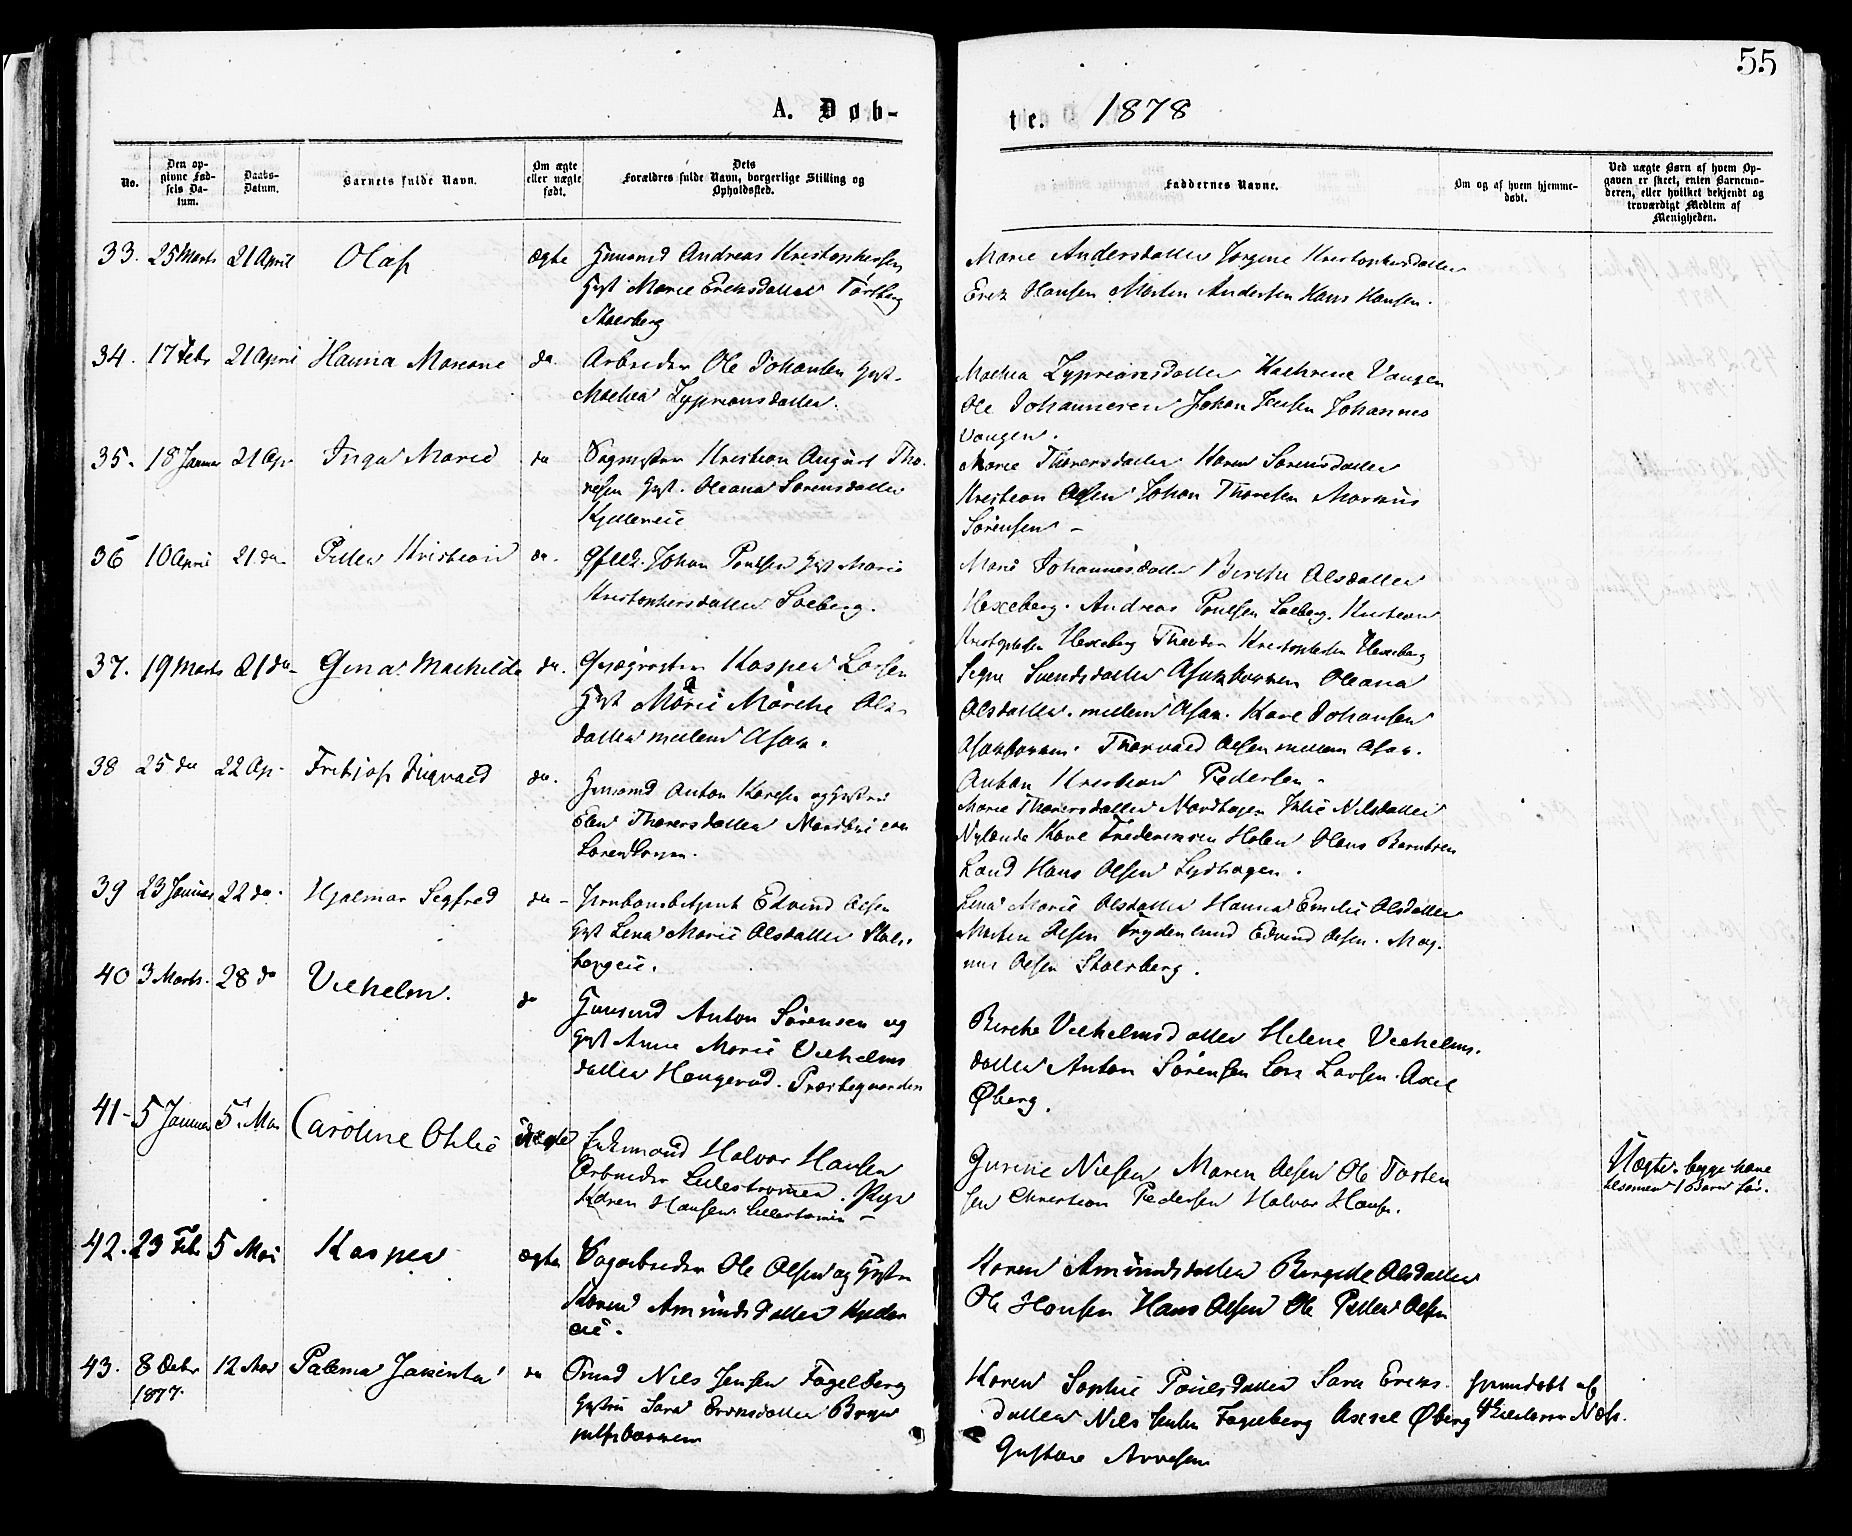 55
A. Døb-
te. 1878
No.
Den op-
givne Fød-
sels Da-
tum.
Daabs-
Datum.
Barnets fulde Navn.
Om ægte
eller uægte
født.
Dets
Forældres fulde Navn, borgerlige Stilling og
Opholdssted.
Faddernes Navne.
Om og af hvem hjemme-
døbt.
Ved uægte Børn af hvem Op-
gaven er skeet, enten Barnemo-
deren, eller hvilket bekjendt og
troværdigt Medlem af
Menigheden.
33. 25 Marts 21 April Olaf ægte Huusmd Andreas Kristophersen
Hust Marie Eriksdatter
Skaarberg
Marie Andersdatter Jørgine Kristophersdatter
Erik Hansen Martin Andersen Hans Hansen.
34. 17 Febr 21 April Hanna Mariane do. Arbeider Ole Johansen Hust.
Mathea Zyprianisdatter.
Mathea Zyprianisdatter Kathrine Vangen
Ole Johannesen Johan Jensen Johannes
Vangen.
35. 18 Januar 21 Ap. Inga Marie do Kristian August Tho-
resen Hust. Oleana Sørensdatter
Marie Thoresdatter Karen Sørensdatter
Kristian Olsen Johan Thoresen Markus
Sørensen -
36 10 April 21 do Petter Kristian do. Johan Poulsen Hust Marie
Kristophersdatter Solberg.
Marie Johannesdatter Birthe Olsdatter
Hexeberg. Andreas Poulsen Solberg. Kristian
Kristophersen Hexeberg Theodor Kristophersen Hexeberg
37. 19 Marts 21 do Gina Mathilde do. Kasper Larsen
Hust Marie Marthe Ols-
datter mellem Asak.
Signe Svendsdatter Oleana
Olsdatter mellem Asak. Karl Johansen
Thorvald Olsen mellem Asak.
Anton Kristian Pedersen.
38 25 do 22 Ap. Fritjof Ingvald do. Huusmd Anton Karlsen og Hustru
Elen Thorersdatter
Marie Thorersdatter Nordhagen Julie Nilsdatter
Nylande Karl Frederiksen Holen Hans Berntsen
Lund Hans Olsen Sydhagen.
39 23 Januar 22 do. Hjalmar Segfred do - Jernbanebetjent Edvind Olsen
Hust Lena Marie Olsdatter
Lena Marie Olsdatter Hanna Emilie Olsdatter
Martin Olsen Frydenlund Edvind Olsen. Mag-
nus Olsen Skaarberg.
40 3 Marts. 28 do Vilhelm. do Huusmd Anton Sørensen og
Hust Anne Marie Vilhelms
datter Haugerud. Præstegaarden
Birthe Vilhelmsdatter Helene Vilhelms.
datter Anton Sørensen Lars Larsen. Axel
Øberg.
41- 5 Januar 5 Mai Caroline Othlie uægte Enkemand Halvor Hansen
Arbeider Lillestrømmen. Pige
Karen Hansen Lillestrømmen -
Gurine Nielsen Maren Olsen Ole Torsten
sen Christian Pedersen Halvor Hansen.
Uægte. begge have
tilsammen 1 Barn før.
42. 23 Feb 5 Mai Kasper ægte Ole Olsen og Hustru
Karen Amundsdatter
Karen Amundsdatter Birgitte Olsdatter
Ole Hansen Hans Olsen Ole Petter Olsen
43. 8 Octbr
1877.
12 Mai Palema Jasinta do Smed Nils Jensen Fagelberg
Hustru Sara Eriksdatter
Karen Sophie Poulsdatter Sara Eriks.
datter Nils Jensen Fagelberg Axsel Øberg
Gustave Arvesen
hjemmedøbt af